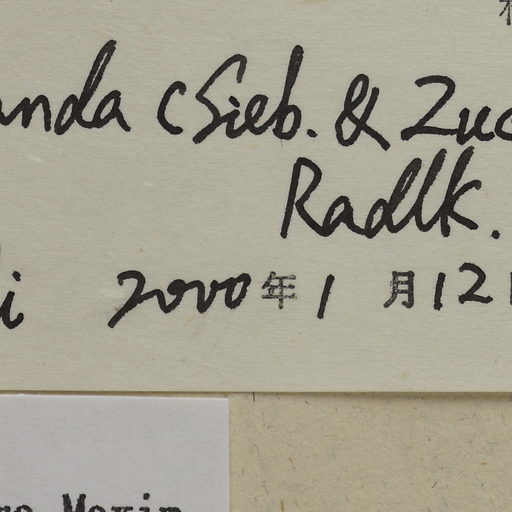 anda (Sieb. & Zuc
Radlk.
i 2000年1月12